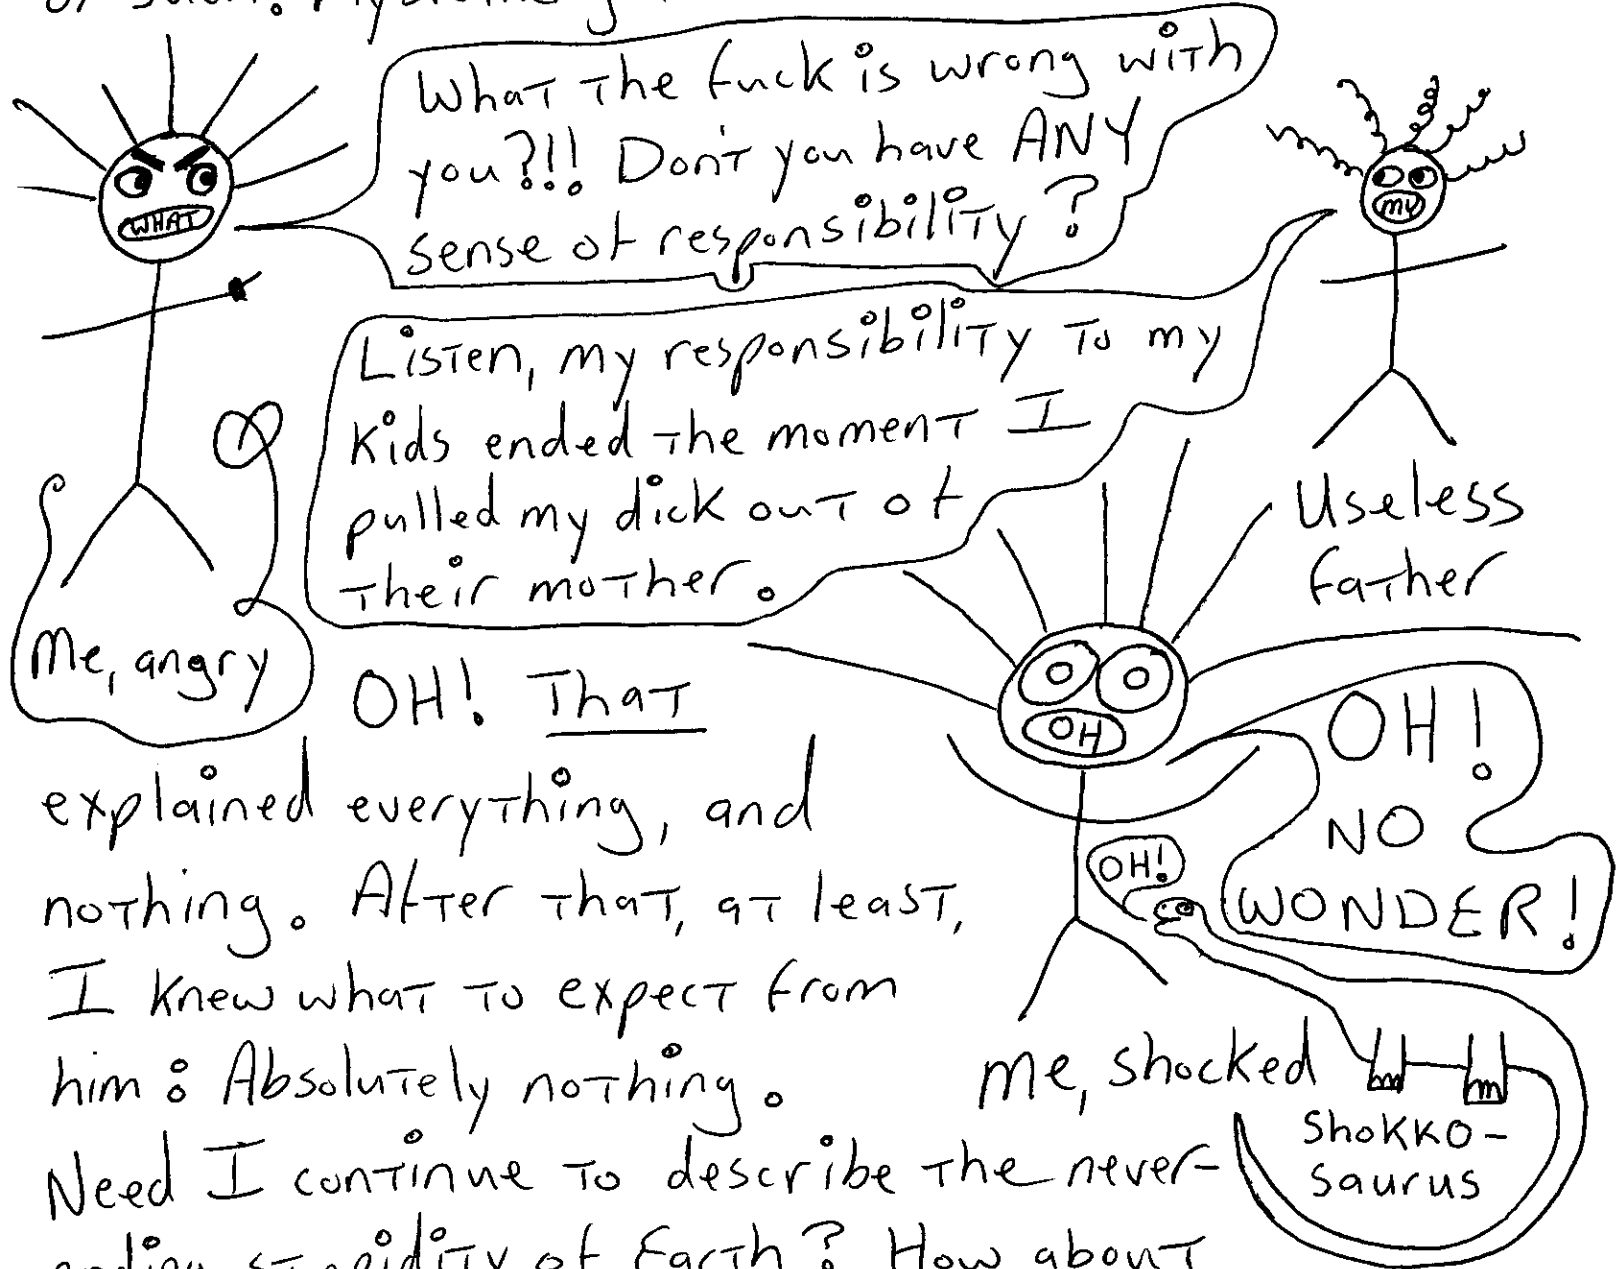 WHAT
What the fuck is wrong with
you?!! Don't you have ANY
sense of responsibility?
MY
Listen, my responsibility to my
kids ended the moment I
pulled my dick out of
their mother.
Useless
father
Me, angry
OH! That
explained everything, and
nothing. After that, at least,
I knew what to expect from
him: Absolutely nothing.
OH
OH!
NO
WONDER!
OH!
me, shocked
Shokko-
saurus
Need I continue to describe the never-
ending stupidity of Earth? How about